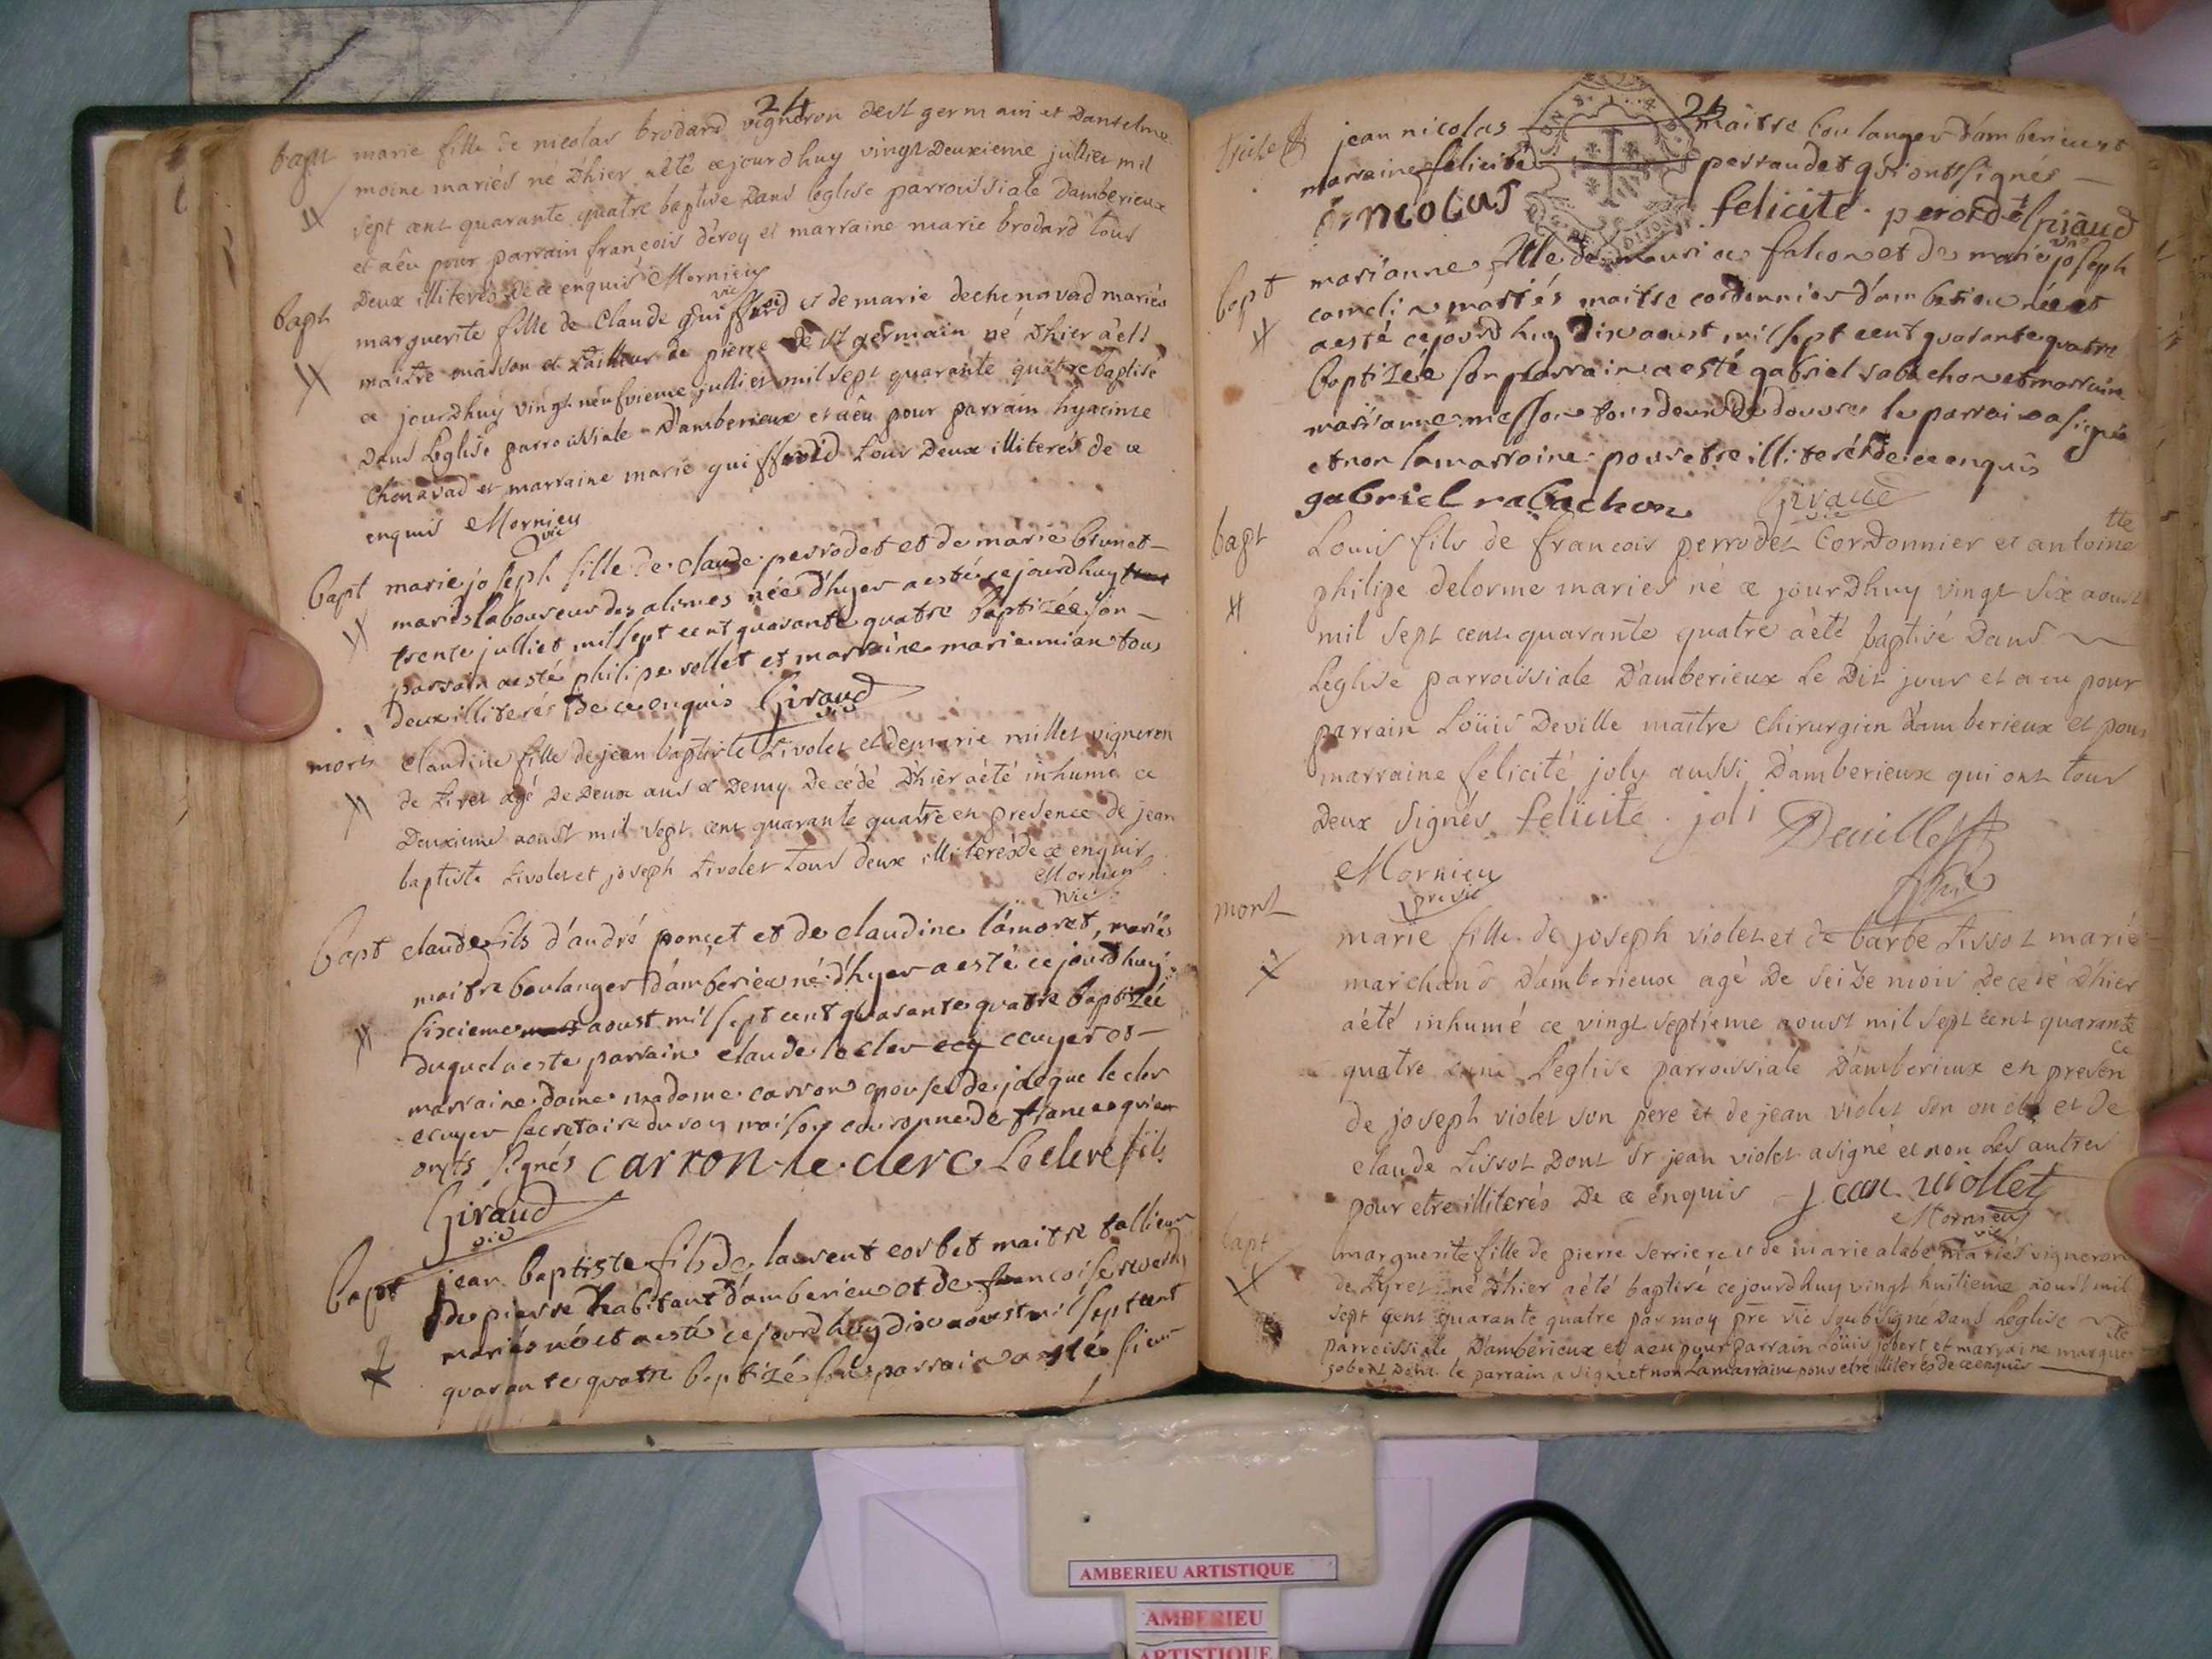 24
bapt marie fille de nicolas brodard vigneron dest germain et Danselme
moine mariés né Dhier aèté cejourdhuy vingt Deuxieme juilliet mil
sept cent quarante quatre baptisé Dans léglise parroissiale Damberieux
et aèu pour parrain françois déroy et marraine marie brodard tous
Deux illiterés de ce enquis Mornieu
vic
bapt marguerite fille de Claude guiffroid et de marie dechenavad mariés
maitre masson et tailleur de pierre de st germain né Dhier aèté
ce jourdhuy vingt neufvieme juillier mil sept quarante quatre baptisé
Dans Leglise parroissiale D'amberieux et aèu pour parrain hyacinte
Chenavad et marraine marie guiffroid tous Deux illiterés de ce
enquis Mornieu
vic
bapt marie joseph fille de claude perrodet et de marie brunet
mariés laboureur des alimes née d'hyer aesté cejourdhuy
trente julliet mil sept cent quarante quatre baptizée son
parrain aesté philipe rollet et marraine marie mian tous
deux illiterés de ce enquis Giraud
vic
mort Claudine fille de jean baptiste Livolet et de marie millet vigneron
de tiret agé de Deux ans et Demy Decédé Dhier aèté inhumé ce
Deuxieme aoust mil sept cent quarante quatre en presence de jean
baptiste Livolet et joseph Livolet tous deux illiterés de ce enquis
Mornieu
vic
bapt claude fils d'andré ponçet et de claudine lámoret, mariés
maitre boulanger d'ámberieu né d'hyer aesté cejourdhuy
sixcieme aoust mil sept cent quarante quatre baptizée
duquel aeste parrain claude le cler ecuyer et
marraine dame madame carron epouse de jácque le cler
ecuyer secretaire du roy maison couronne de france qui
onts signés carron le clerc Leclerc fils
Giraud
vic
bapt jean baptiste fils de laurent corbet maitre tallieur
de pierre habitant d'amberieu et de francoise
mariés né et aesté cejourdhuy dix aoust mil sept cent
quarante quatre baptizé son parrain aesté sieur
jean nicolas maitre boulanger d'amberieux et
marraine felicite perraudet qui onts signés
nicolas felicité perodet Giraud
vic
bapt marianne fille de mauri ce falcon et de marie joseph
cameli mariés maitre cordonnier d'amberieu née et
aesté cejourdhuy dix aoust mil sept cent quarante quatre
baptizée son parrain aesté gabriel rabachon et marraine
marianne messon tous deux de douvres le parrain a signé
et non la marraine pour etre illiteré de ce enquis
gabriel rabachon Giraud
vic
bapt Louis fils de francois perrodet Cordonnier et antoine
tte
philipe delorme mariés né ce jourdhuy vingt six aoust
mil sept cent quarante quatre aèté baptisé Dans
Leglise parroissiale D'amberieux Le Dit jour et a eu pour
parrain Loüis Deville maitre chirurgien d'amberieux et pour
marraine felicité joly aussi D'amberieux qui ont tous
Deux signés felicité joli Deville
Mornieu
pre vic
mort marie fille de joseph violet et de barbe tissot marié
marchand D'amberieux agé De seize mois Decedé D'hier
aèté inhumé ce vingt septieme aoust mil sept cent quarante
quatre Leglise parroissiale D'amberieux en presen
ce
de joseph violet son pere et de jean violet son oncle et de
claude tissot Dont sr jean violet a signé et non Les autres
pour etre illiterés De ce enquis jean viollet
Mornieu
vic
bapt marguerite fille de pierre serriere et de marie alabe mariés vigneron
de tiret né D'hier aèté baptisé cejourdhuy vingt huitieme aoust mil
sept cent quarante quatre par moy pre vic soubsigné Dans Leglise
parroissiale D'amberieux et aeu pour parrain Loüis jobert et marraine margue
ite
jobert Dont le parrain a signé et non La marraine pour etre illiterés de ce enquis
AMBERIEU ARTISTIQUE
AMBERIEU
ARTISTIQUE